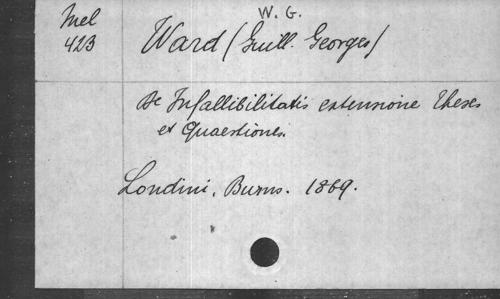 Mel
423
W. G.
Ward (Guill. Georges)
De Infallibilitatis extensione Theses
et Quaestiones.
Londini, Burns. 1869.